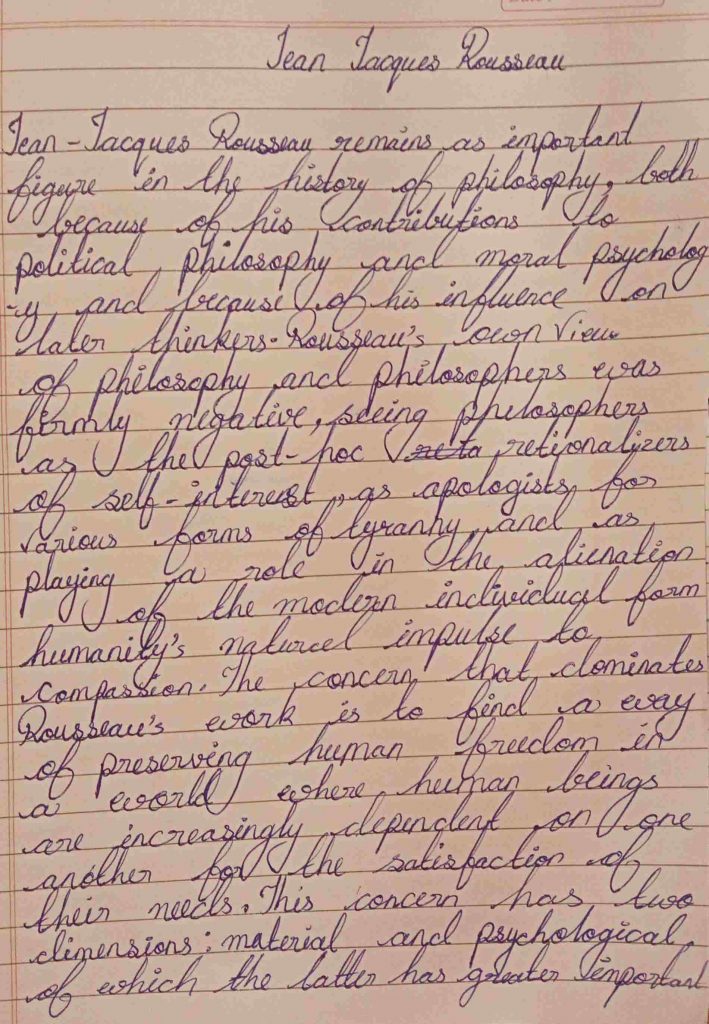 Jean Jacques Rousseau
Jean-Jacques Rousseau remains as important
figure in the history of philosophy, both
because of his contributions to
political philosophy and moral psycholog
-y and because of his influence on
later thinkers. Rousseau's own view
of philosophy and philosophers was
firmly negative, seeing philosophers
as the post-hoc retionalizers
of self-interest, as apologists for
various forms of tyranny, and as
playing a role in the alienation
of the modern individual form
humanity's natural impulse to
compassion. The concern that dominates
Rousseau's work is to find a way
of preserving human freedom in
a world where human beings
are increasingly dependent on one
another for the satisfaction of
their needs. This concern has two
dimensions: material and psychological,
of which the latter has greater important